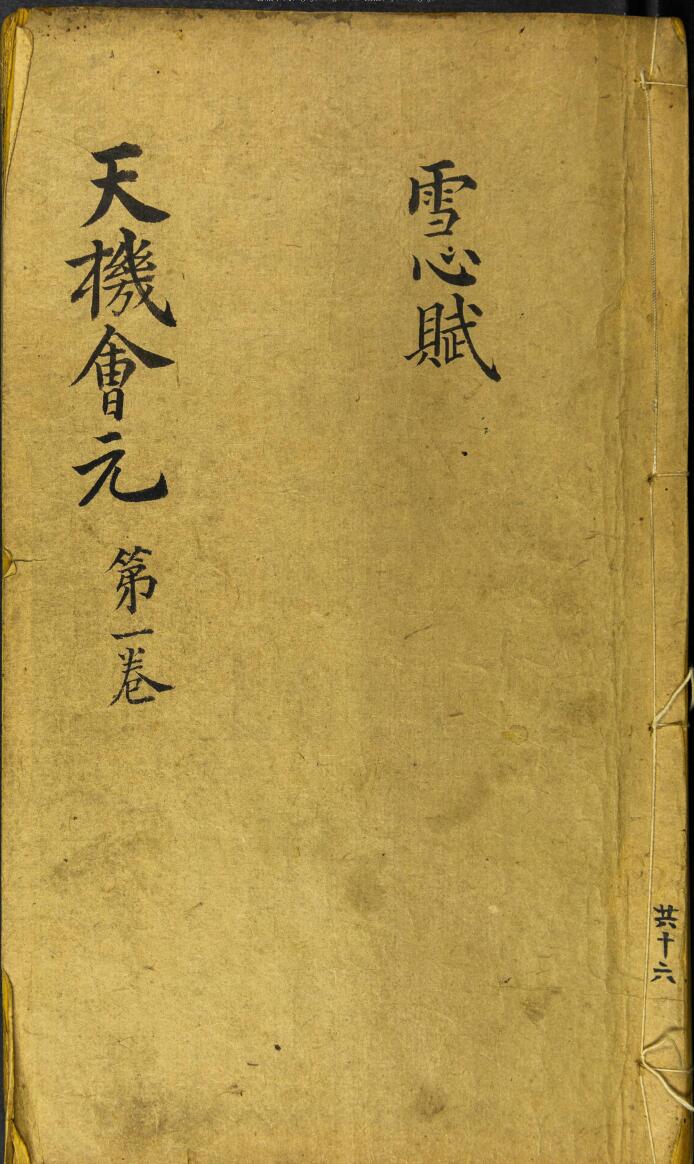 共十六
雪心賦
天機會元 第一卷